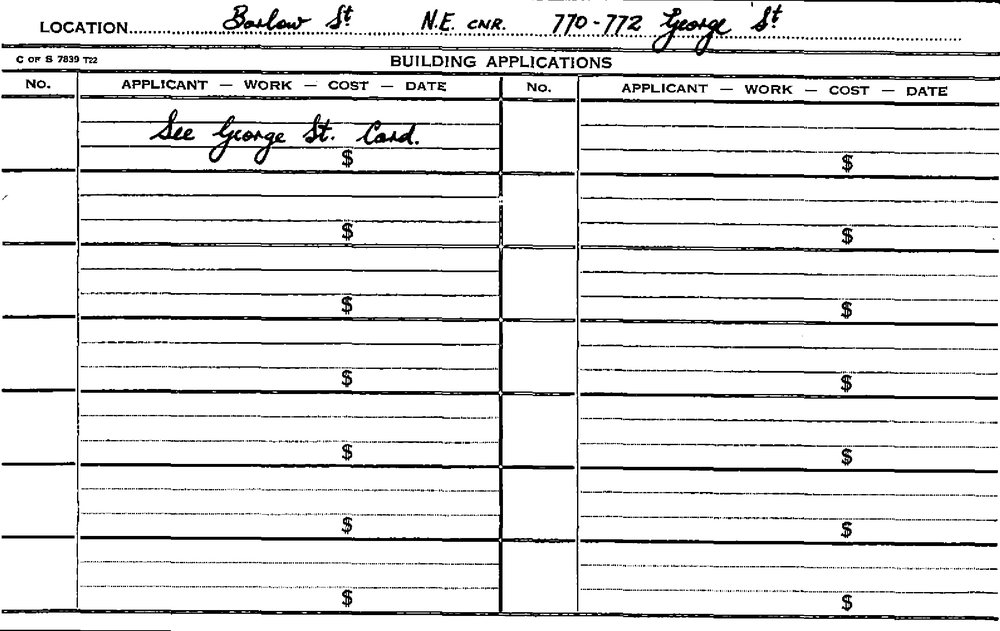 LOCATION Barlow St N.E. CNR. 770-772 George St
C OF S 7839 T22 BUILDING APPLICATIONS
No. APPLICANT — WORK — COST — DATE No. APPLICANT — WORK — COST — DATE
See George St. Card.
$ $
$ $
$ $
$ $
$ $
$ $
$ $